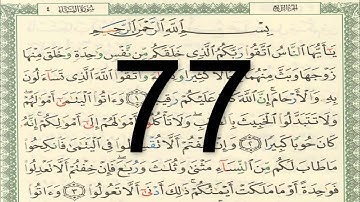 سُورَةُ النِّسَاءِ ٤
الجزء الرابع
بِسْمِ اللَّهِ الرَّحْمَٰنِ الرَّحِيمِ
يَٰٓأَيُّهَا النَّاسُ اتَّقُوا رَبَّكُمُ الَّذِى خَلَقَكُم مِّن نَّفْسٍ وَٰحِدَةٍ وَخَلَقَ مِنْهَا
زَوْجَهَا وَبَثَّ مِنْهُمَا كَثِيرًا وَاتَّقُوا اللَّهَ الَّذِى تَسَآءَلُونَ
بِهِۦ وَالْأَرْحَامَ إِنَّ اللَّهَ كَانَ عَلَيْكُمْ رَقِيبًا ١ وَءَاتُوا الْيَتَٰمَىٰٓ أَمْوَٰلَهُمْ
وَلَا تَتَبَدَّلُوا الْخَبِيثَ وَلَا تَأْكُلُوٓا أَمْوَٰلَهُمْ إِلَىٰٓ أَمْوَٰلِكُمْ إِنَّهُۥ
كَانَ حُوبًا كَبِيرًا ٢ وَإِنْ خِفْتُمْ أَلَّا تُقْسِطُوا فِى الْيَتَٰمَىٰ فَانكِحُوا
مَا طَابَ لَكُم مِّنَ النِّسَآءِ مَثْنَىٰ وَثُلَٰثَ وَرُبَٰعَ فَإِنْ خِفْتُمْ أَلَّا تَعْدِلُوا
فَوَٰحِدَةً أَوْ مَا مَلَكَتْ أَيْمَٰنُكُمْ ذَٰلِكَ أَدْنَىٰٓ أَلَّا تَعُولُوا ٣ وَءَاتُوا
77